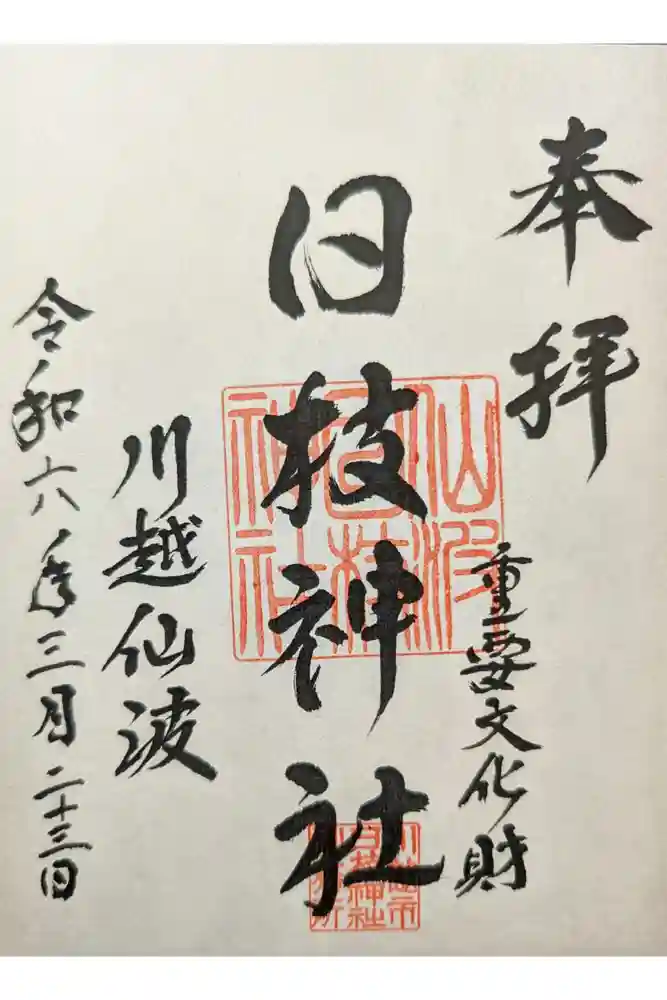 奉拝
重要文化財
日枝神社
川越仙波
令和六年三月二十三日
仙波
日枝
神社